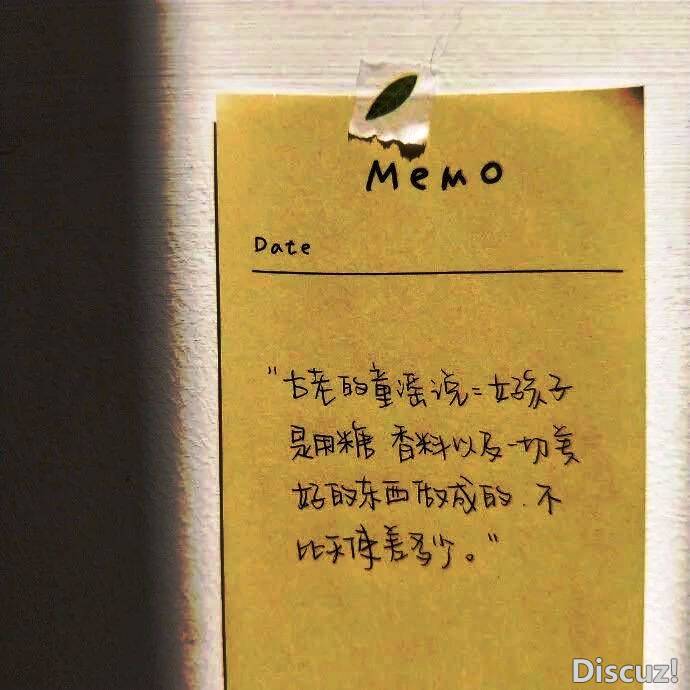 Memo
Date
"古老的童谣说：女孩子
是用糖 香料以及一切美
好的东西做成的、不
比天使差多少。"
Discuz!